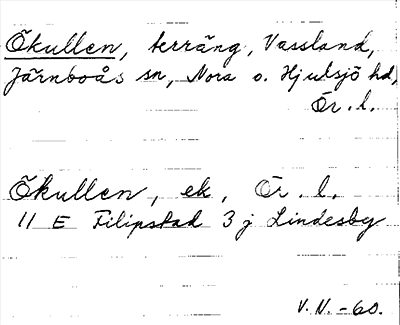 Ökullen, terräng, Vassland,
Järnboås sn, Nora o. Hjulsjö hd,
Ör. l.
Ökullen, ek, Ör. l.
11 E Filipstad 3 j Lindesby
V. N. -60.